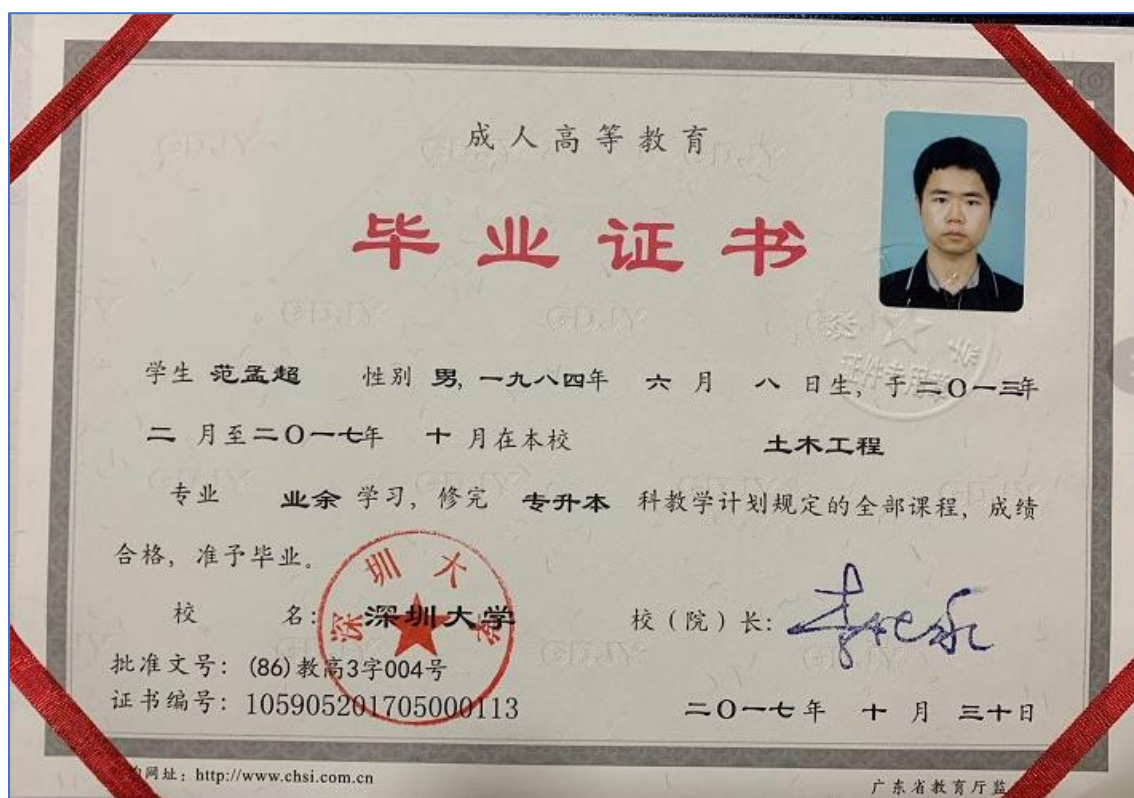 成人高等教育
毕业证书
学生 范孟超 性别 男, 一九八四年 六 月 八 日生, 于二〇一三年
二 月至二〇一七年 十 月在本校 土木工程
专业 业余 学习, 修完 专升本 科教学计划规定的全部课程, 成绩
合格, 准予毕业。
校 名: 深圳大学
校(院)长:
深圳大学
批准文号: (86)教高3字004号
证书编号: 105905201705000113
二〇一七年 十 月 三十日
网址: http://www.chsi.com.cn
广东省教育厅监
证件专用章